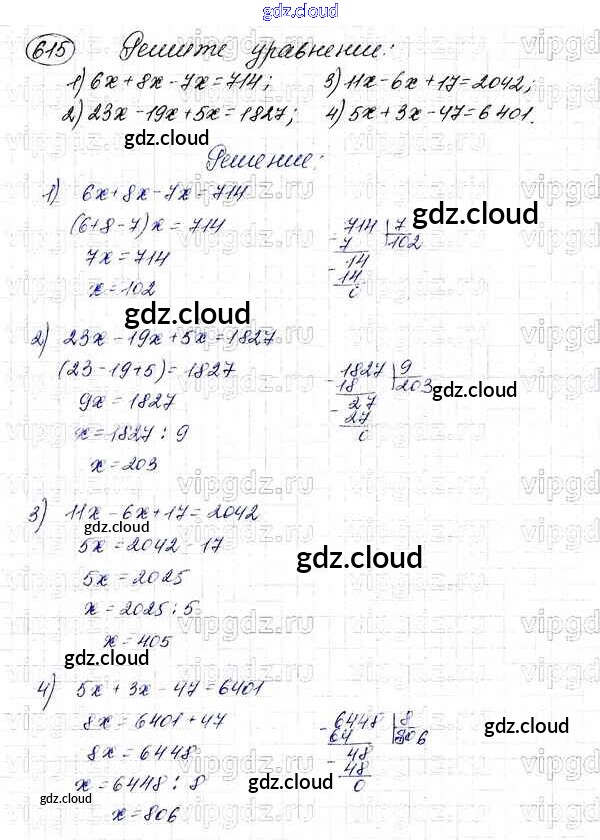 gdz.cloud
615 Решите уравнение:
1) 6x+8x-7x=714; 3) 11x-6x+17=2042;
2) 23x-19x+5x=1827; 4) 5x+3x-47=6401.
gdz.cloud gdz.cloud
Решение:
1) 6x+8x-7x=714
(6+8-7)x=714
7x=714
x=102
714 7
- 7 102
14
- 14
0
gdz.cloud
gdz.cloud
2) 23x-19x+5x=1827
(23-19+5)=1827
9x=1827
x=1827:9
x=203
- 1827 9
18 203
- 27
27
0
gdz.cloud
3) 11x-6x+17=2042
gdz.cloud
5x=2042-17
5x=2025
x=2025:5
x=405
gdz.cloud
gdz.cloud
4) 5x+3x-47=6401
8x=6401+47
8x=6448
x=6448:8
x=806
- 6448 8
64 806
- 48
48
0
gdz.cloud
gdz.cloud
gdz.cloud
vipgdz.ru